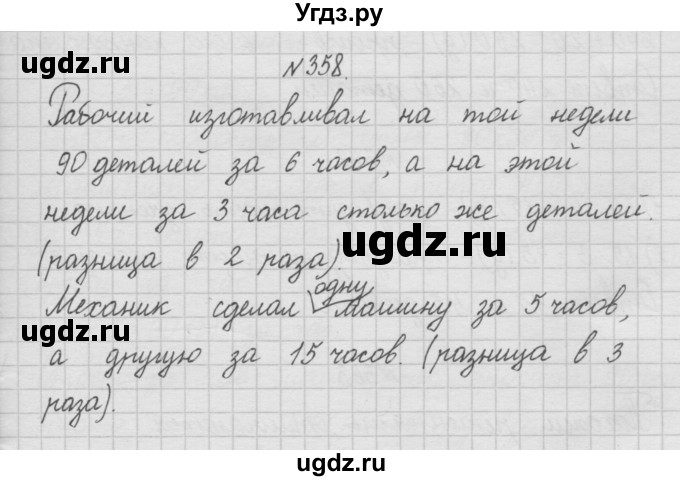 Угдз.ру
ugdz.ru
№358.
Рабочий изготавливал на той недели
90 деталей за 6 часов, а на этой
недели за 3 часа столько же деталей.
(разница в 2 раза).
ugdz.ru
одну
Механик сделал машину за 5 часов,
ugdz.ru
а другую за 15 часов. (разница в 3
раза).
ugdz.ru
ugdz.ru